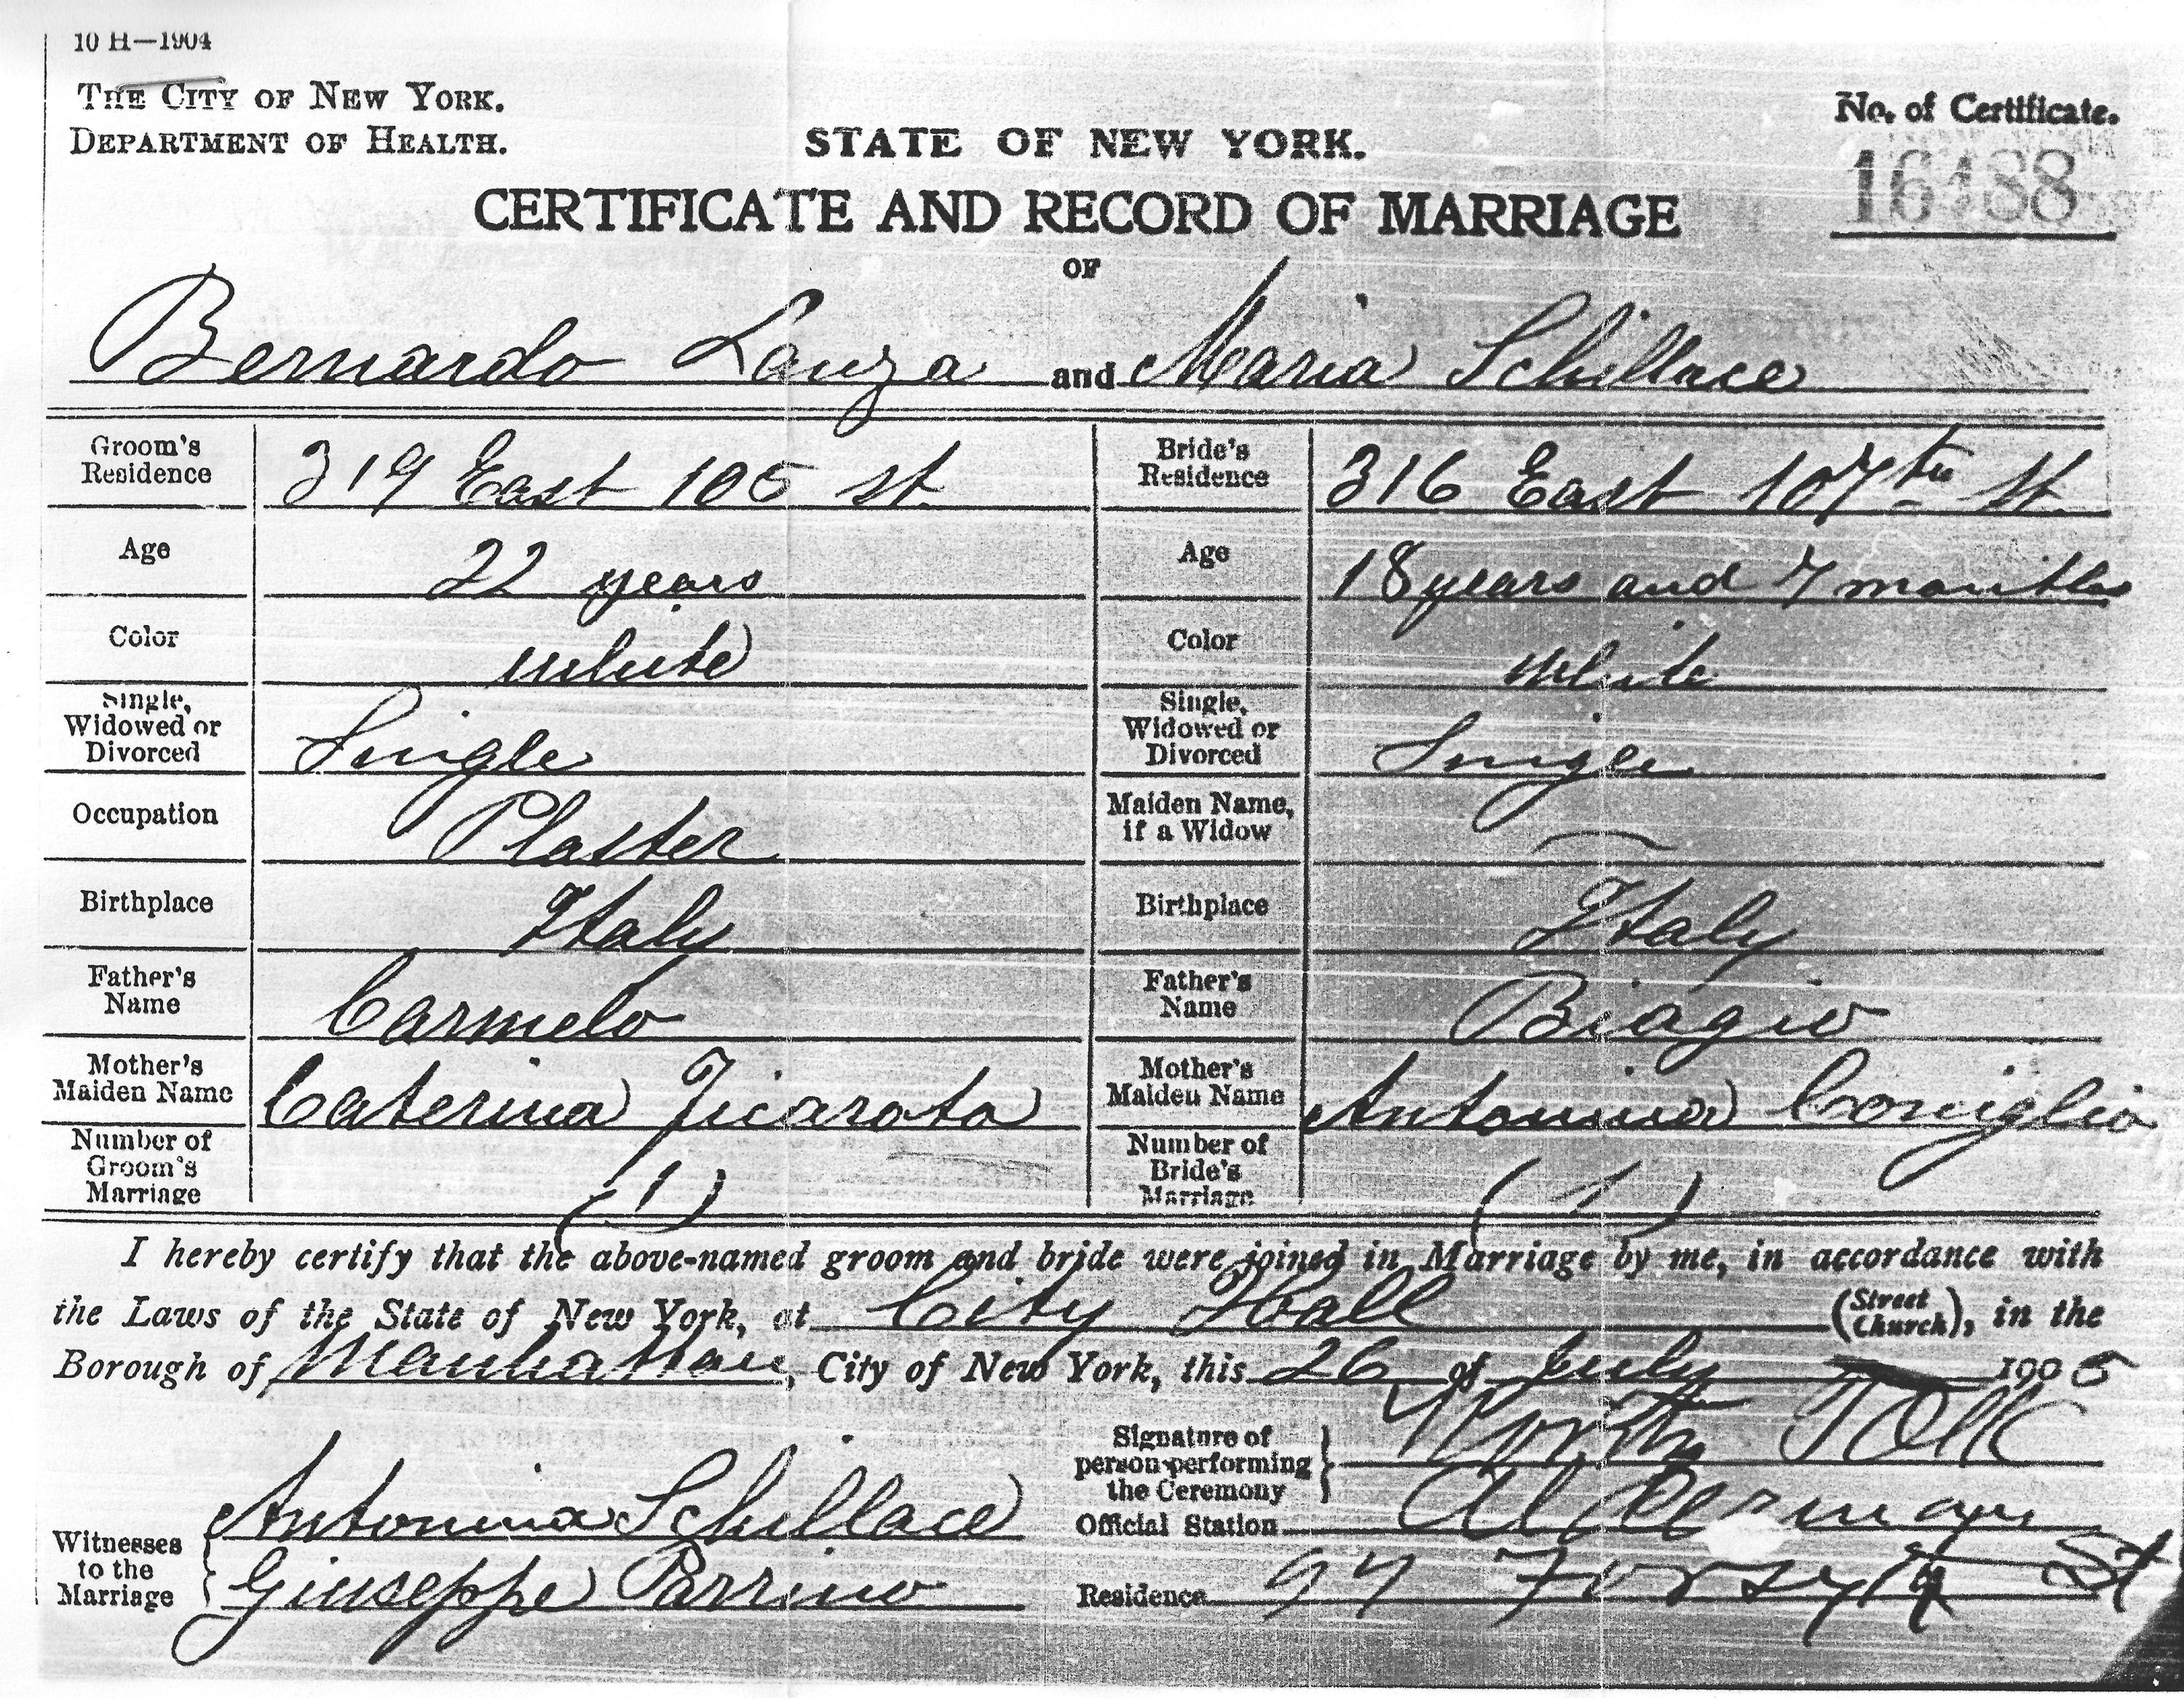 10 H—1904
THE CITY OF NEW YORK.
DEPARTMENT OF HEALTH.
STATE OF NEW YORK.
No. of Certificate.
16488
CERTIFICATE AND RECORD OF MARRIAGE
OF
Bernardo Lanza and Maria Schillace
Groom's Residence 319 East 105 st. Bride's Residence 316 East 107th St.
Age 22 years Age 18 years and 7 months
Color white Color White
Single, Widowed or Divorced Single Single, Widowed or Divorced Single
Occupation Plaster Maiden Name, if a Widow —
Birthplace Italy Birthplace Italy
Father's Name Carmelo Father's Name Biagio
Mother's Maiden Name Caterina Ficarota Mother's Maiden Name Antonina Coniglio
Number of Groom's Marriage (1) Number of Bride's Marriage (1)
I hereby certify that the above-named groom and bride were joined in Marriage by me, in accordance with
the Laws of the State of New York, at City Hall (Street Church), in the
Borough of Manhattan, City of New York, this 26 of July 1905
Signature of person performing the Ceremony
Official Station Alderman
Residence 97 Forsyth St
Witnesses to the Marriage Antonina Schillace
Giuseppe Parrino